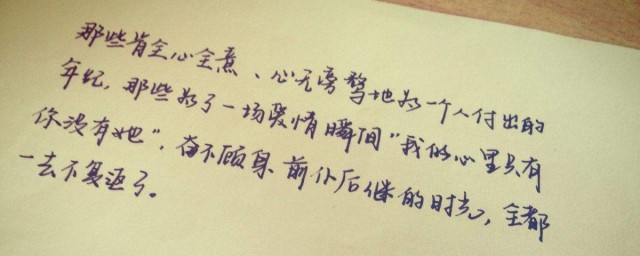 那些肯全心全意、心无旁骛地为一个人付出的
年纪，那些为了一场爱情瞬间“我的心里只有
你没有她”，奋不顾身、前仆后继的时光，全都
一去不复返了。